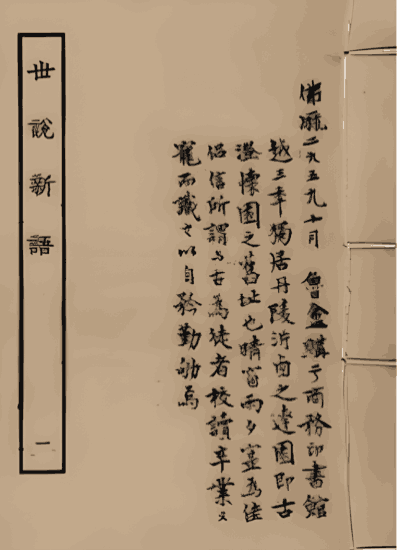 佛曆二九五九十月 魯盦購于商務印書館
越三年獨居丹陵西之達園即古
澄懷園之舊址也晴窗雨夕為佳
侶信所謂與古為徒者校讀卒業又
而識之以自矜勤劬焉
世說新語 一